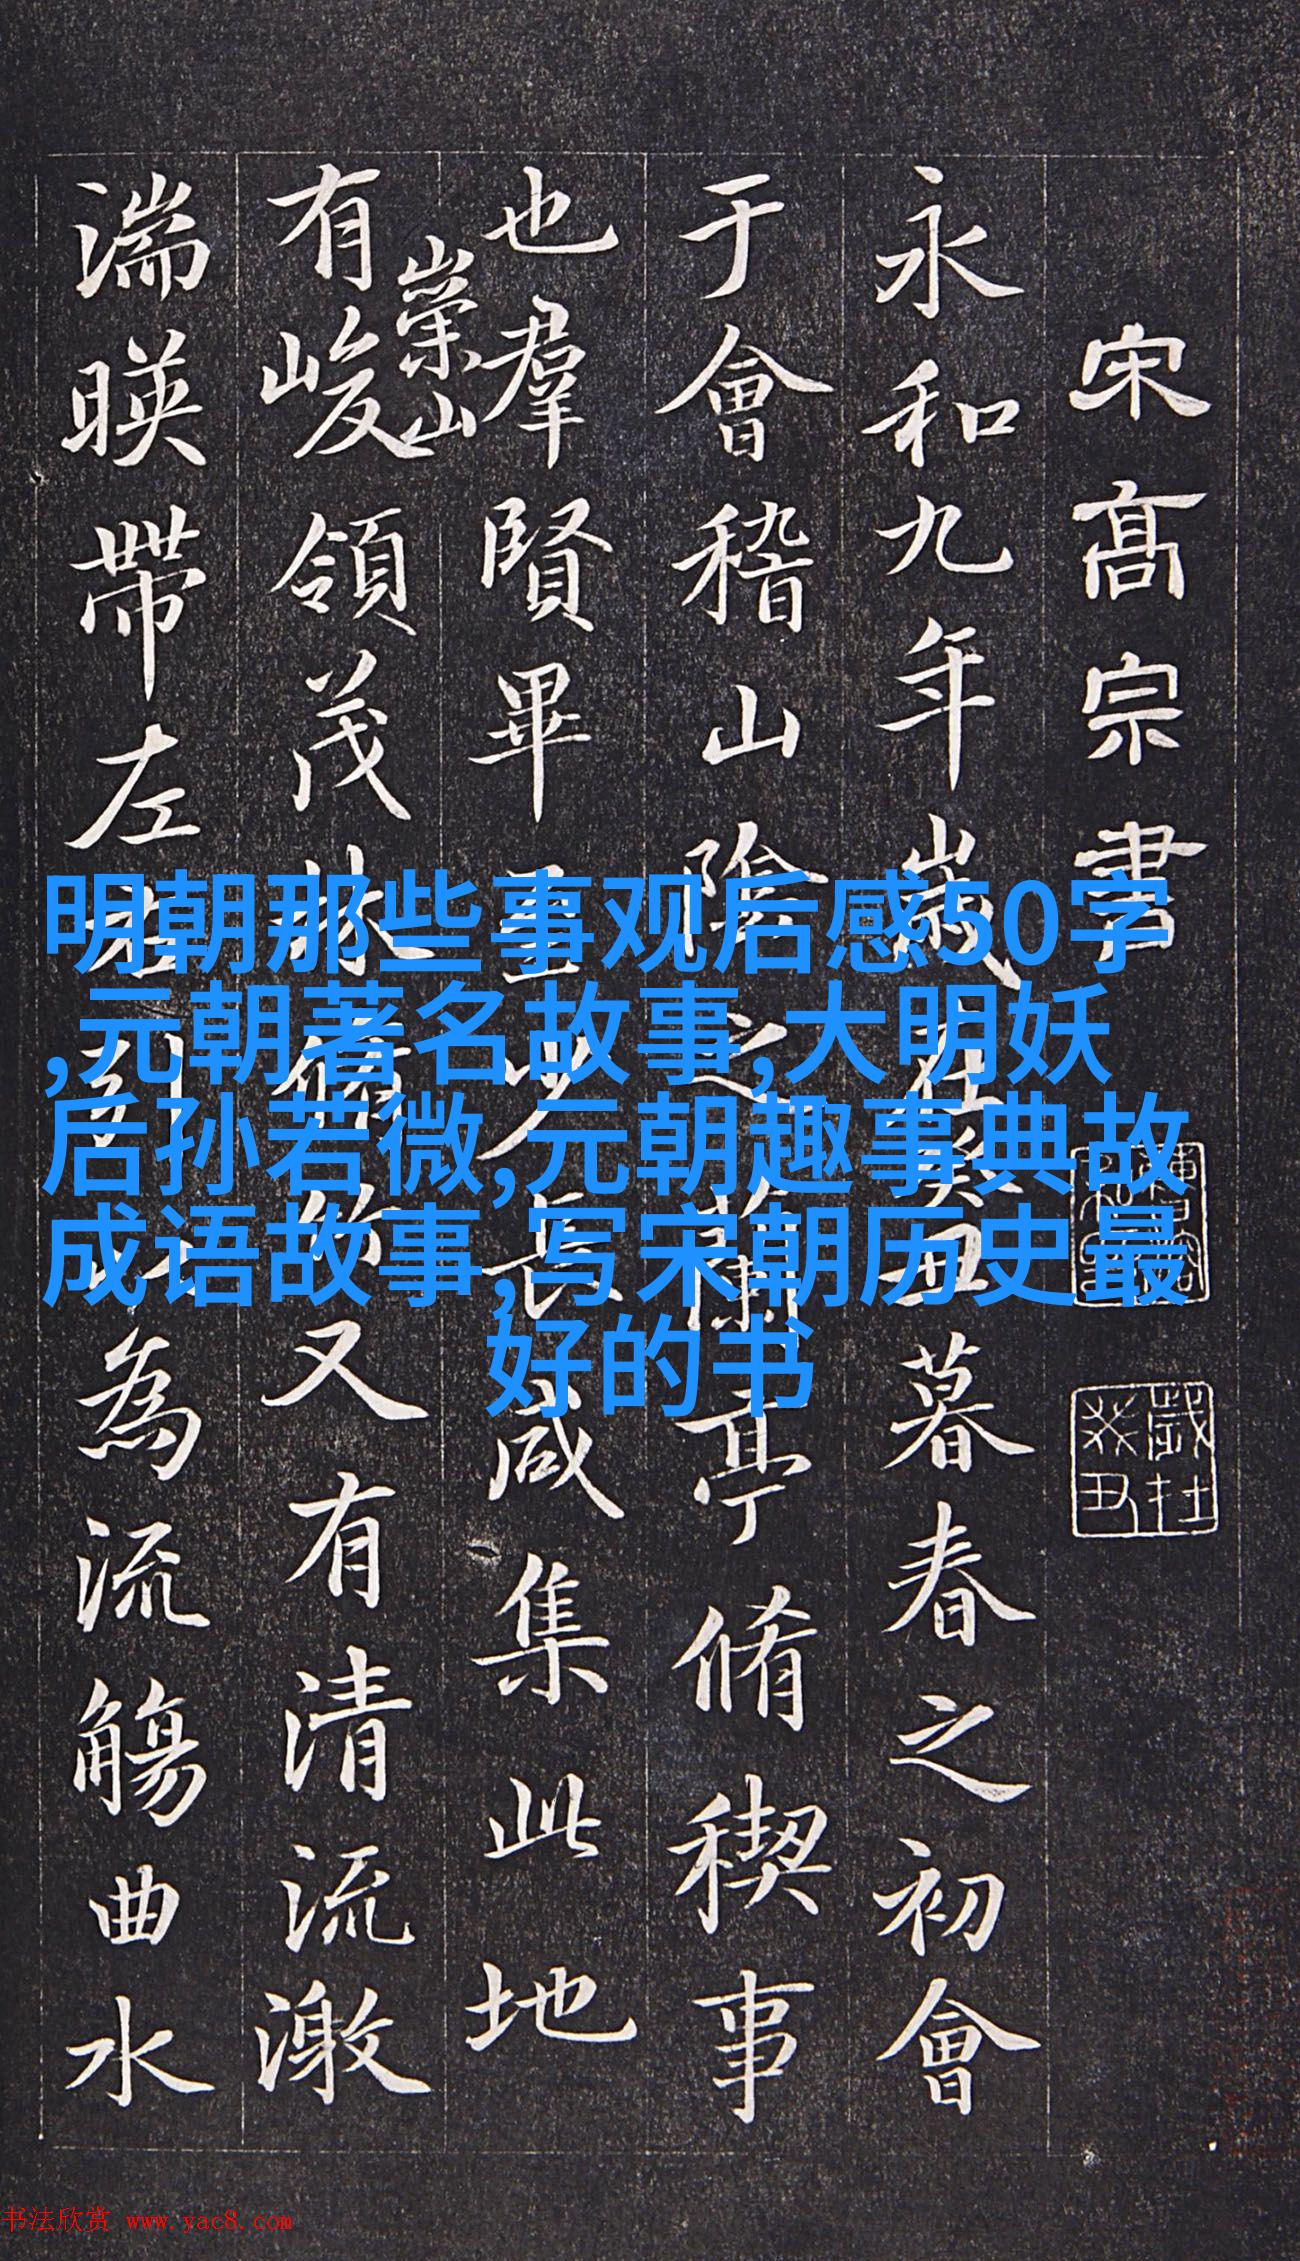 宋髙宗書
永和九年歲在癸丑暮春之初會
于會稽山陰之蘭亭脩稧事
也羣賢畢至少長咸集此地
有崇山峻領茂林脩竹又有清流激
湍暎帶左右引以為流觴曲水
歲在癸丑
明朝那些事观后感50字
,元朝著名故事,大明妖
后孙若微,元朝趣事典故
成语故事,写宋朝历史最
好的书
书法欣赏 www.yac8.com